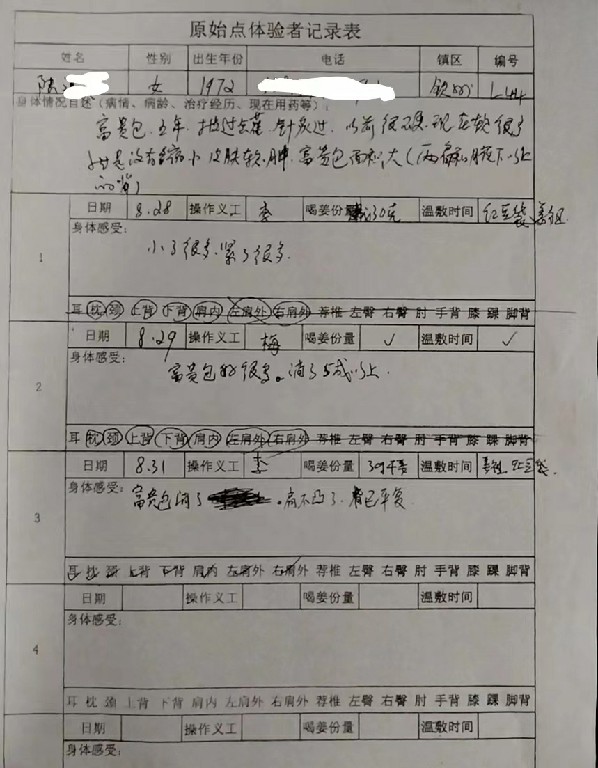 原始点体验者记录表
姓名 性别 出生年份 电话 镇区 编号
陆 女 1972
身体情况自述（病情、病龄、治疗经历、现在用药等）：
富贵包 五年 针灸过 以前很硬 现在软很了
皮肤软 肿 富贵包面积大（两侧 腋下以上
的背）
日期 8.28 操作义工 喝姜份量 30克 温敷时间 红豆袋
身体感受：
小了很多 紧了很多
1
耳 枕 颈 上背 下背 肩内 左肩外 右肩外 荐椎 左臀 右臀 肘 手背 膝 踝 脚背
日期 8.29 操作义工 梅 喝姜份量 ✓ 温敷时间 ✓
身体感受：
富贵包好很多。消了5成以上.
2
耳 枕 颈 上背 下背 肩内 左肩外 右肩外 荐椎 左臀 右臀 肘 手背 膝 踝 脚背
日期 8.31 操作义工 喝姜份量 温敷时间 红豆袋
身体感受：
富贵包消了 。肩不凸了. 背已平复
3
耳 枕 颈 上背 下背 肩内 左肩外 右肩外 荐椎 左臀 右臀 肘 手背 膝 踝 脚背
日期 操作义工 喝姜份量 温敷时间
身体感受：
4
耳 枕 颈 上背 下背 肩内 左肩外 右肩外 荐椎 左臀 右臀 肘 手背 膝 踝 脚背
日期 操作义工 喝姜份量 温敷时间
身体感受：